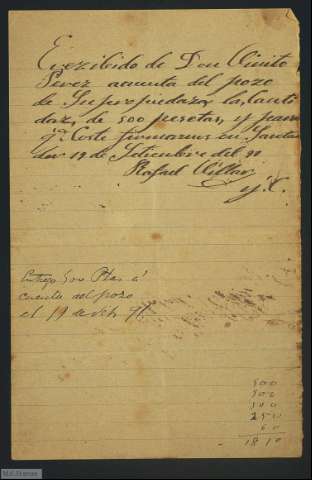 E recibido de Don Quinto
Perez acuenta del pozo
de Su propiedaz la Canti
daz, de 500 pesetas, y para
q.e Coste firmamos en Santan
der 19 de Setiembre del 90
Rafael Villar
y C.
Entrego 500 Ptas á
cuenta del pozo
el 19 de Seb
500
500
500
250
60
1810
M.C.Pronuin